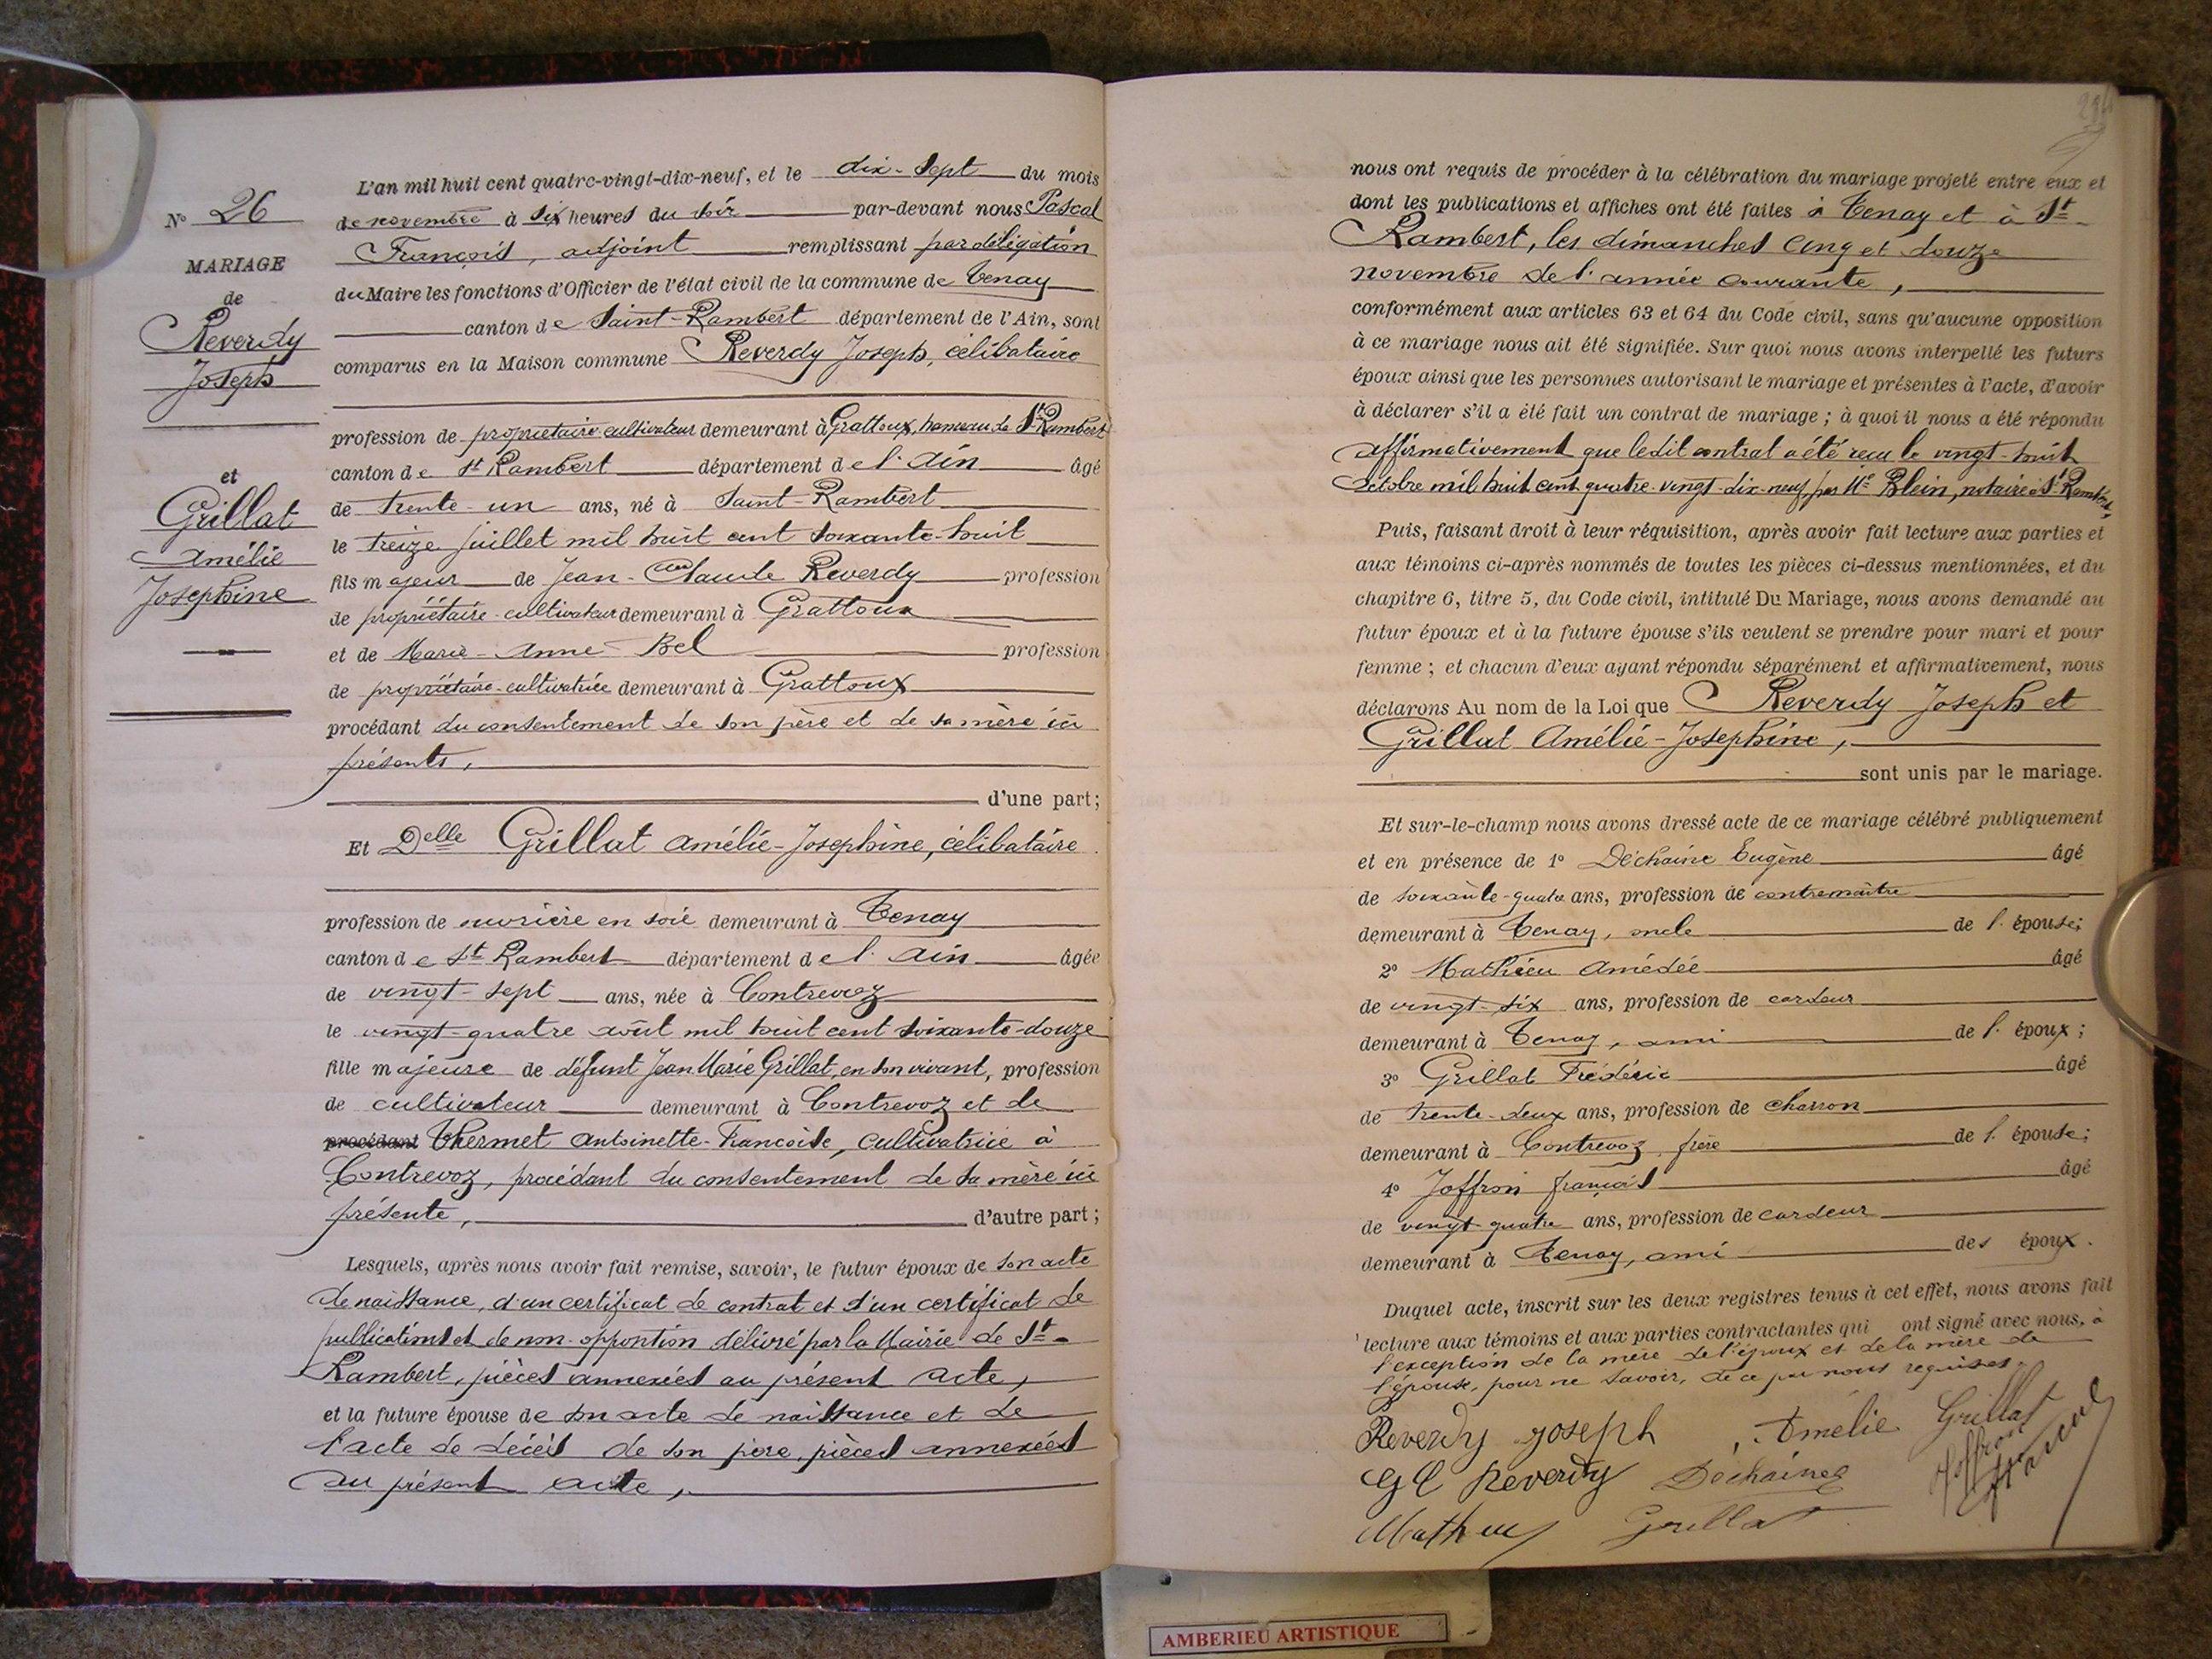 N° 26
MARIAGE
de
Reverdy
Joseph
et
Grillat
Amélie
Joséphine
L'an mil huit cent quatre-vingt-dix-neuf, et le dix-sept du mois
de novembre à six heures du soir par-devant nous Pascal
François, adjoint remplissant par délégation
du Maire les fonctions d'Officier de l'état civil de la commune de Tenay
canton de Saint-Rambert département de l'Ain, sont
comparus en la Maison commune Reverdy Joseph, célibataire
profession de propriétaire cultivateur demeurant à Grattoux, hameau de St Rambert
canton de St Rambert département de l'Ain âgé
de trente-un ans, né à Saint-Rambert
le treize juillet mil huit cent soixante-huit
fils majeur de Jean-Claude Reverdy profession
de propriétaire-cultivateur demeurant à Grattoux
et de Marie-Anne Bel profession
de propriétaire-cultivatrice demeurant à Grattoux
procédant du consentement de son père et de sa mère ici
présents,
d'une part;
Et Delle Grillat Amélie-Joséphine, célibataire
profession de ouvrière en soie demeurant à Tenay
canton de St Rambert département de l'Ain âgée
de vingt-sept ans, née à Contrevoz
le vingt-quatre août mil huit cent soixante-douze
fille majeure de défunt Jean Marie Grillat, en son vivant, profession
de cultivateur demeurant à Contrevoz et de
procédant Thermet Antoinette-Françoise, cultivatrice à
Contrevoz, procédant du consentement de sa mère ici
présente, d'autre part;
Lesquels, après nous avoir fait remise, savoir, le futur époux de son acte
de naissance, d'un certificat de contrat et d'un certificat de
publications et de non-opposition délivré par la Mairie de St-
Rambert, pièces annexées au présent acte,
et la future épouse de son acte de naissance et de
l'acte de décès de son père, pièces annexées
au présent acte,
nous ont requis de procéder à la célébration du mariage projeté entre eux et
dont les publications et affiches ont été faites à Tenay et à St-
Rambert, les dimanches cinq et douze
novembre de l'année courante,
conformément aux articles 63 et 64 du Code civil, sans qu'aucune opposition
à ce mariage nous ait été signifiée. Sur quoi nous avons interpellé les futurs
époux ainsi que les personnes autorisant le mariage et présentes à l'acte, d'avoir
à déclarer s'il a été fait un contrat de mariage; à quoi il nous a été répondu
affirmativement que ledit contrat a été reçu le vingt-huit
octobre mil huit cent quatre-vingt-dix-neuf, par Me Blein, notaire à St Rambert,
Puis, faisant droit à leur réquisition, après avoir fait lecture aux parties et
aux témoins ci-après nommés de toutes les pièces ci-dessus mentionnées, et du
chapitre 6, titre 5, du Code civil, intitulé Du Mariage, nous avons demandé au
futur époux et à la future épouse s'ils veulent se prendre pour mari et pour
femme; et chacun d'eux ayant répondu séparément et affirmativement, nous
déclarons Au nom de la Loi que Reverdy Joseph et
Grillat Amélie-Joséphine,
sont unis par le mariage.
Et sur-le-champ nous avons dressé acte de ce mariage célébré publiquement
et en présence de 1° Déchaine Eugène âgé
de soixante-quatre ans, profession de contremaître
demeurant à Tenay, oncle de l'épouse;
2° Mathieu Amédée âgé
de vingt-six ans, profession de cardeur
demeurant à Tenay, ami de l'époux;
3° Grillat Frédéric âgé
de trente-deux ans, profession de charron
demeurant à Contrevoz, frère de l'épouse;
4° Joffron François âgé
de vingt-quatre ans, profession de cardeur
demeurant à Tenay, ami des époux.
Duquel acte, inscrit sur les deux registres tenus à cet effet, nous avons fait
lecture aux témoins et aux parties contractantes qui ont signé avec nous, à
l'exception de la mère de l'époux et de la mère de
l'épouse, pour ne savoir, de ce par nous requises.
Reverdy Joseph Amélie Grillat
Reverdy Déchaine Joffron
Mathieu Grillat
AMBERIEU ARTISTIQUE